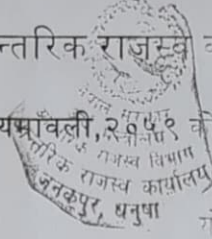 न्तरिक राजस्व
यमावली, २०५९ क
नेपाल सरकार
राजस्व विभाग
तरिक राजस्व कार्यालय
जनकपुर, धनुषा